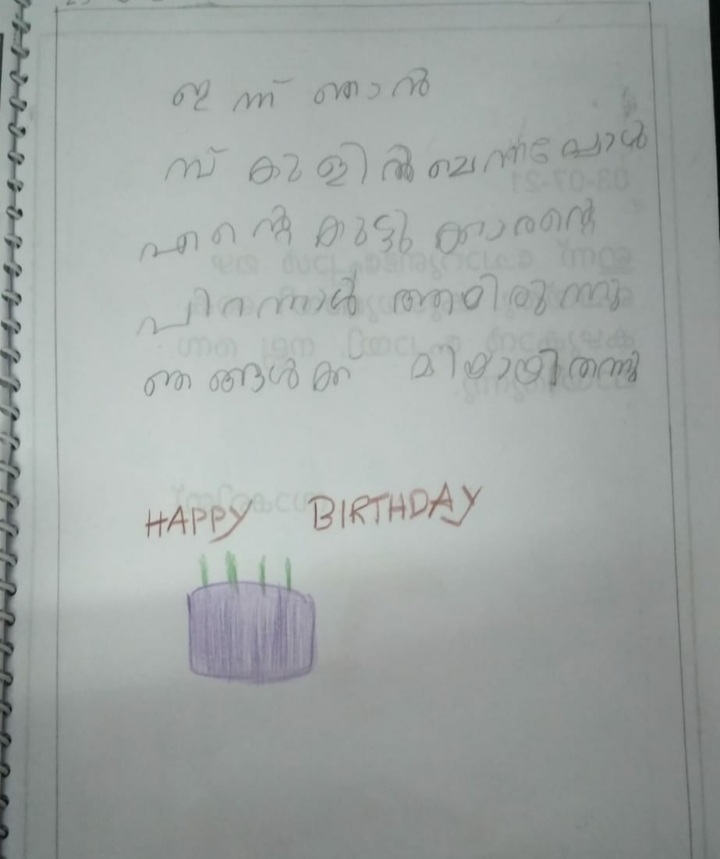 ഇന്ന് ഞാൻ
സ്കുളിൽ ചെന്നപ്പോൾ
എന്റെ കുട്ടുകാരന്റെ
പിറന്നാൾ ആയിരുന്നു
ഞങ്ങൾക്ക മിഠായിതന്നു
HAPPY BIRTHDAY